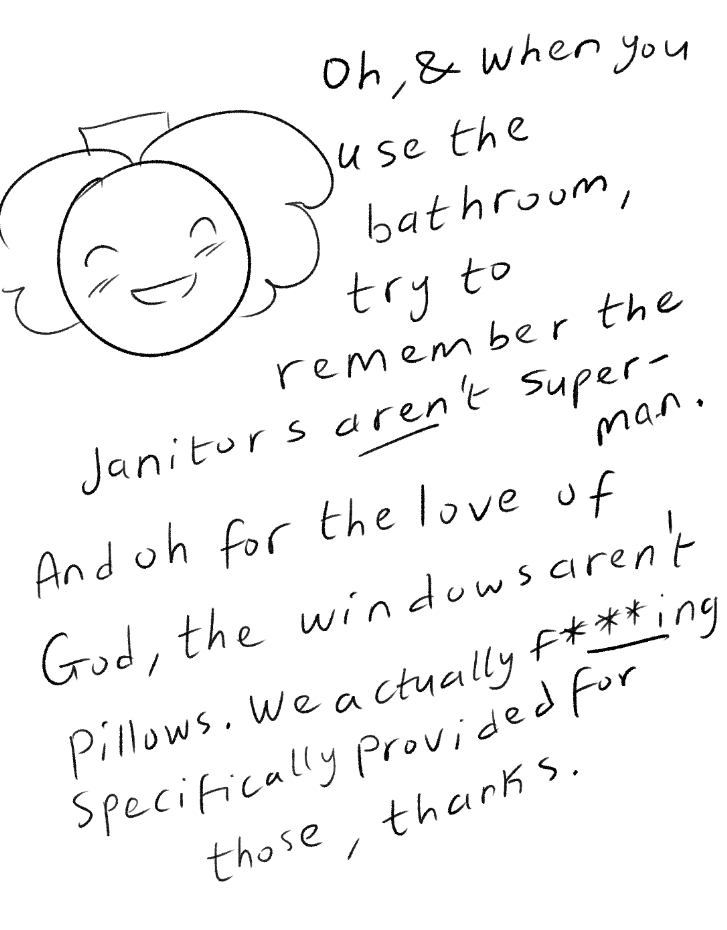 Oh, & when you
use the
bathroom,
try to
remember the
Janitors aren't super-
man.
And oh for the love of
God, the windows aren't
pillows. We actually f***ing
specifically provided for
those, thanks.